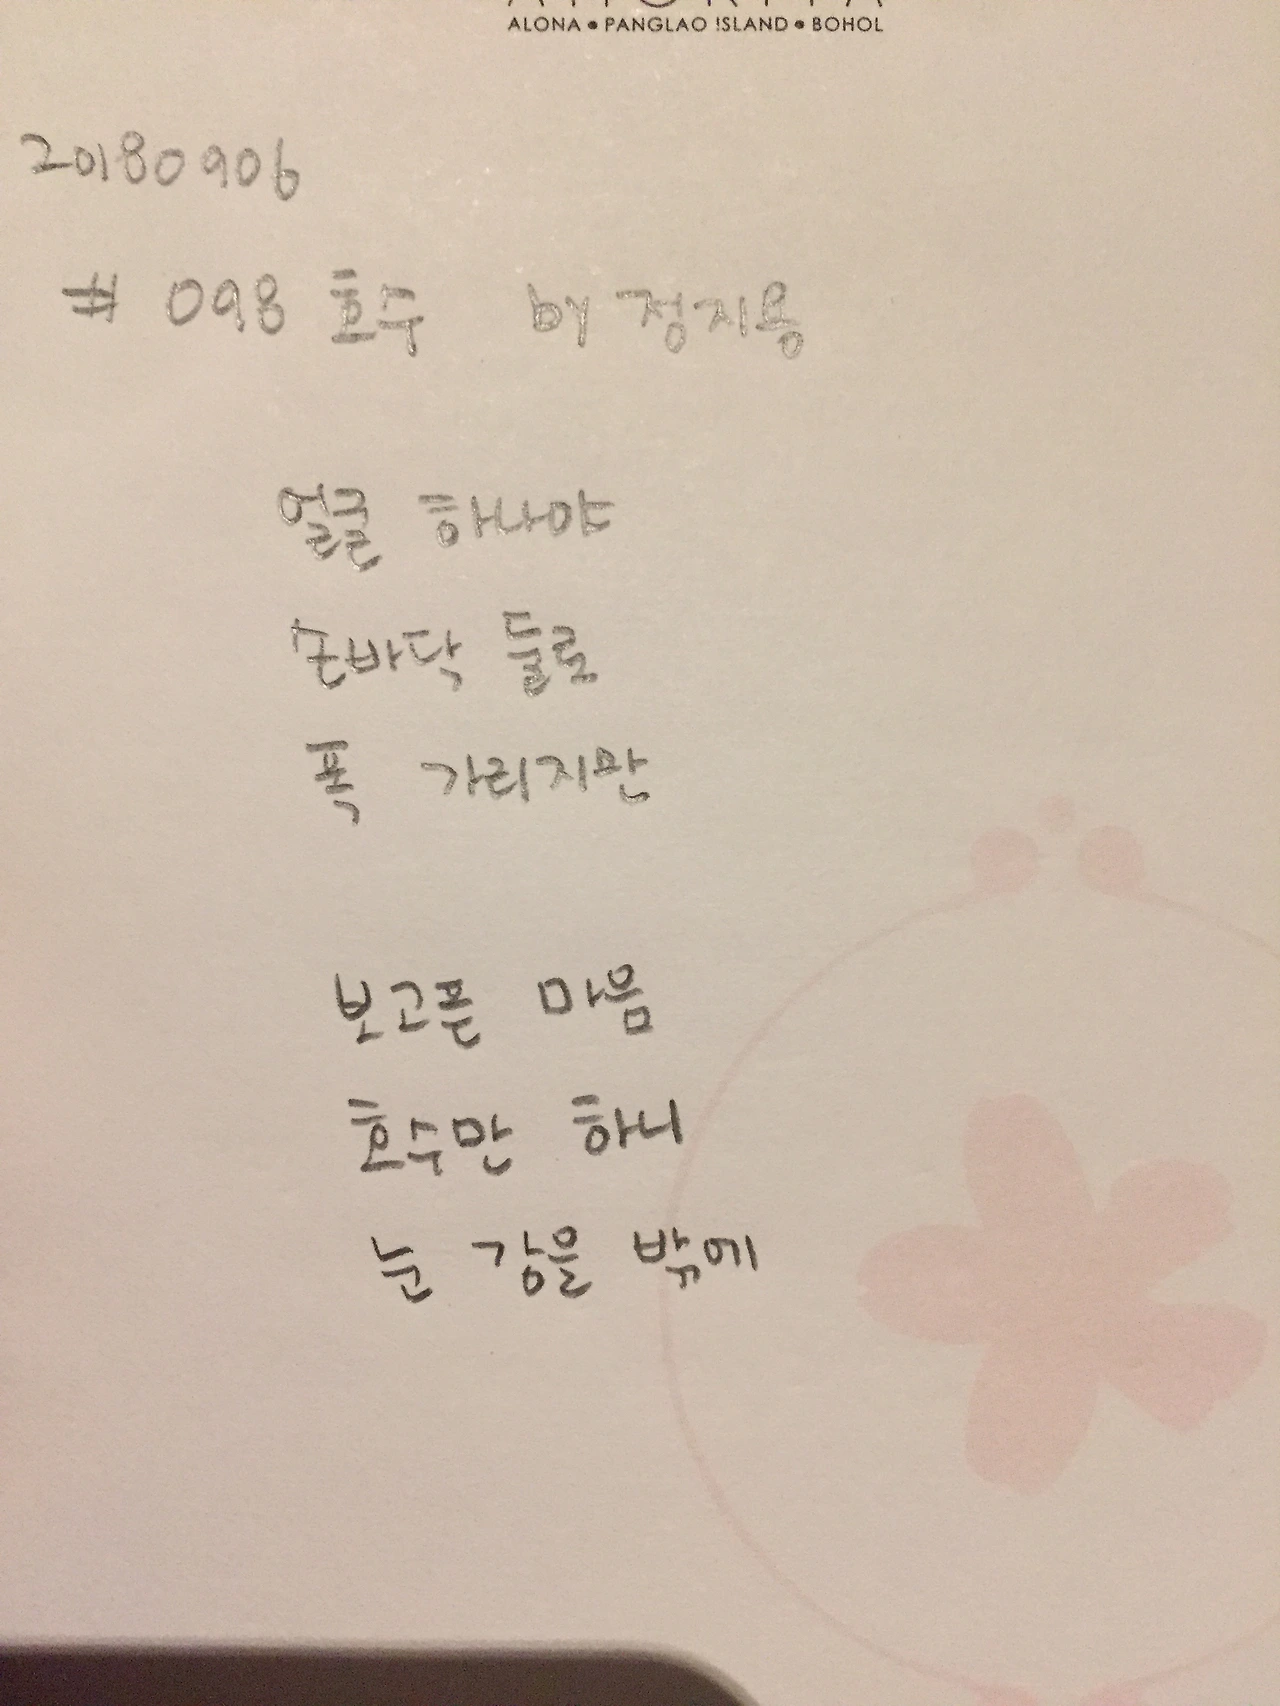 ALONA • PANGLAO ISLAND • BOHOL
20180906
# 098 호수 by 정지용
얼굴 하나야
손바닥 둘로
폭 가리지만
보고픈 마음
호수만 하니
눈 감을 밖에